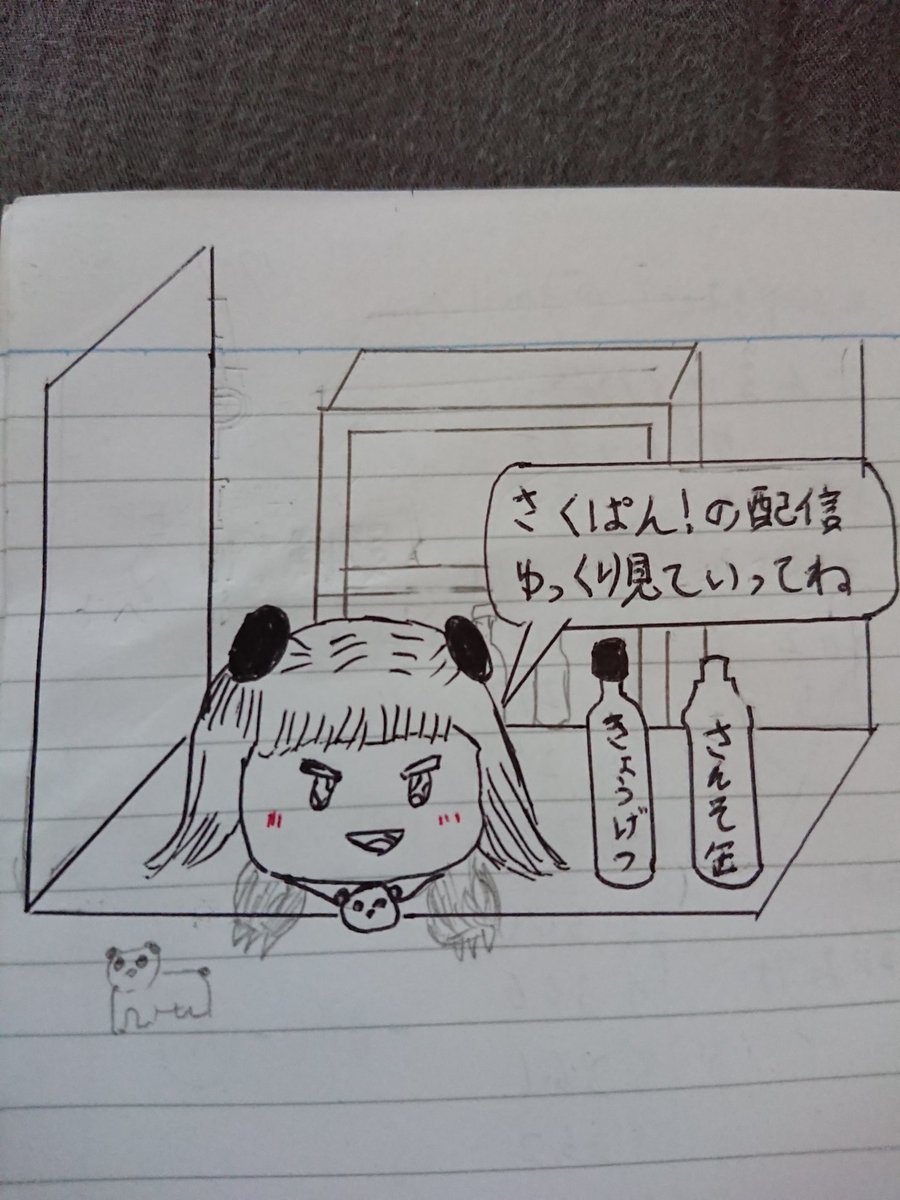 さくぱん!の配信
ゆっくり見ていってね
きょうげつ
さんそ缶